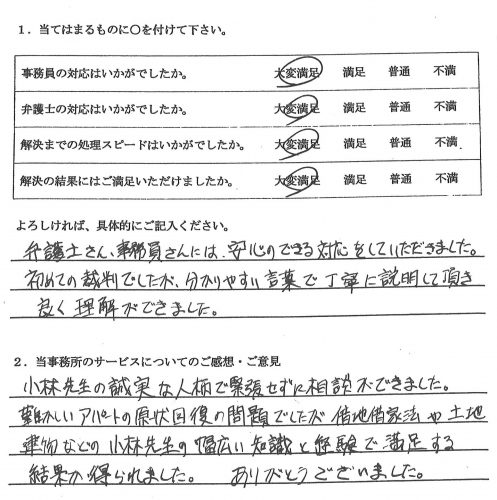 1．当てはまるものに○を付けて下さい。
事務員の対応はいかがでしたか。 大変満足 満足 普通 不満
弁護士の対応はいかがでしたか。 大変満足 満足 普通 不満
解決までの処理スピードはいかがでしたか。 大変満足 満足 普通 不満
解決の結果にはご満足いただけましたか。 大変満足 満足 普通 不満
よろしければ、具体的にご記入ください。
弁護士さん、事務員さんには、安心のできる対応をしていただきました。
初めての裁判でしたが、分かりやすい言葉で丁寧に説明して頂き
良く理解ができました。
2．当事務所のサービスについてのご感想・ご意見
小林先生の誠実な人柄で緊張せずに相談ができました。
難かしいアパートの原状回復の問題でしたが借地借家法や土地
建物などの小林先生の幅広い知識と経験で満足する
結果が得られました。 ありがとうございました。